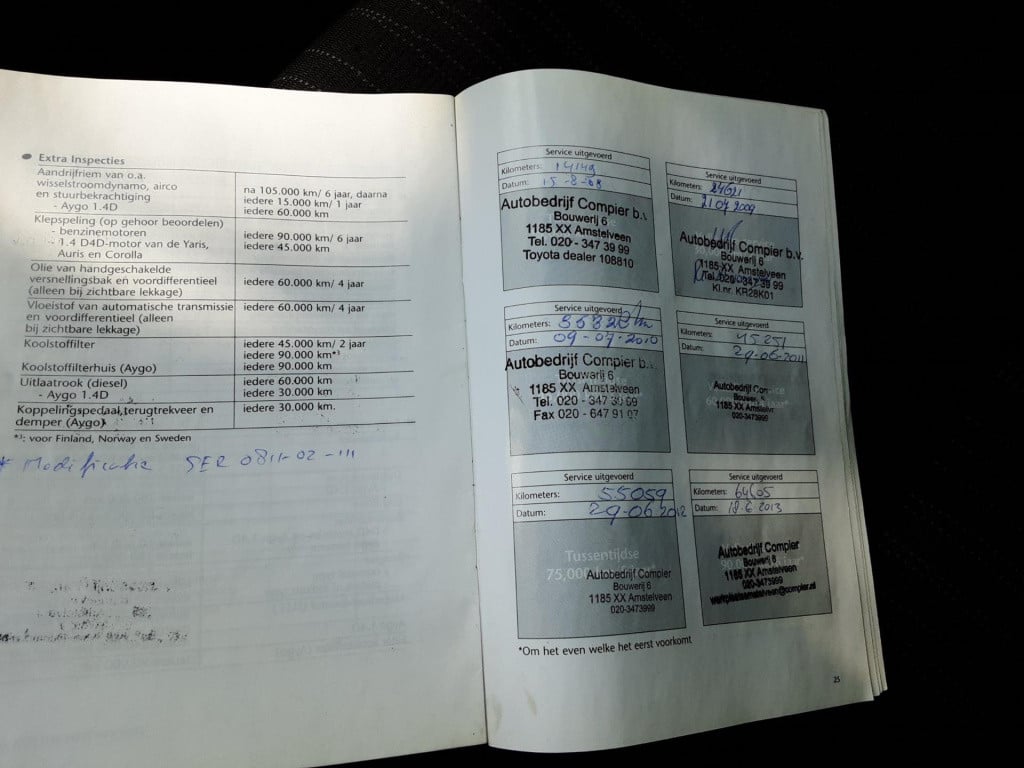 ● Extra Inspecties
Aandrijfriem van o.a.
wisselstroomdynamo, airco
en stuurbekrachtiging
- Aygo 1.4D
na 105.000 km/ 6 jaar, daarna
iedere 15.000 km/ 1 jaar
iedere 60.000 km
Klepspeling (op gehoor beoordelen)
- benzinemotoren
- 1.4 D4D-motor van de Yaris,
Auris en Corolla
iedere 90.000 km/ 6 jaar
iedere 45.000 km
Olie van handgeschakelde
versnellingsbak en voordifferentieel
(alleen bij zichtbare lekkage)
iedere 60.000 km/ 4 jaar
Vloeistof van automatische transmissie
en voordifferentieel (alleen
bij zichtbare lekkage)
iedere 60.000 km/ 4 jaar
Koolstoffilter
iedere 45.000 km/ 2 jaar
iedere 90.000 km*³
Koolstoffilterhuis (Aygo)
iedere 90.000 km
Uitlaatrook (diesel)
- Aygo 1.4D
iedere 60.000 km
iedere 30.000 km
Koppelingspedaal, terugtrekveer en
demper (Aygo)
iedere 30.000 km.
*³: voor Finland, Norway en Sweden
* Modificatie SER 0811-02-111
Service uitgevoerd
Kilometers: 14149
Datum: 15-8-08
Autobedrijf Compier b.v.
Bouwerij 6
1185 XX Amstelveen
Tel. 020 - 347 39 99
Toyota dealer 108810
Service uitgevoerd
Kilometers: 24621
Datum: 21 07 2009
Autobedrijf Compier b.v.
Bouwerij 6
1185 XX Amstelveen
Tel. 020 - 347 39 99
Kl.nr. KR28K01
Service uitgevoerd
Kilometers:
Datum: 09-07-2010
Autobedrijf Compier b.v.
Bouwerij 6
1185 XX Amstelveen
Tel. 020 - 347 39 99
Fax 020 - 647 91 07
Service uitgevoerd
Kilometers: 45251
Datum: 29-06-2011
Autobedrijf
Bouwerij
1185 XX Amstelveen
020-3473999
Service uitgevoerd
Kilometers: 55059
Datum: 29-06-2012
Tussentijdse
75,000
Autobedrijf Compier
Bouwerij 6
1185 XX Amstelveen
020-3473999
Service uitgevoerd
Kilometers: 64605
Datum: 18 6 2013
Autobedrijf Compier
Bouwerij 6
1185 XX Amstelveen
020-3473999
werkplaatsamstelveen@compier.nl
*Om het even welke het eerst voorkomt
25